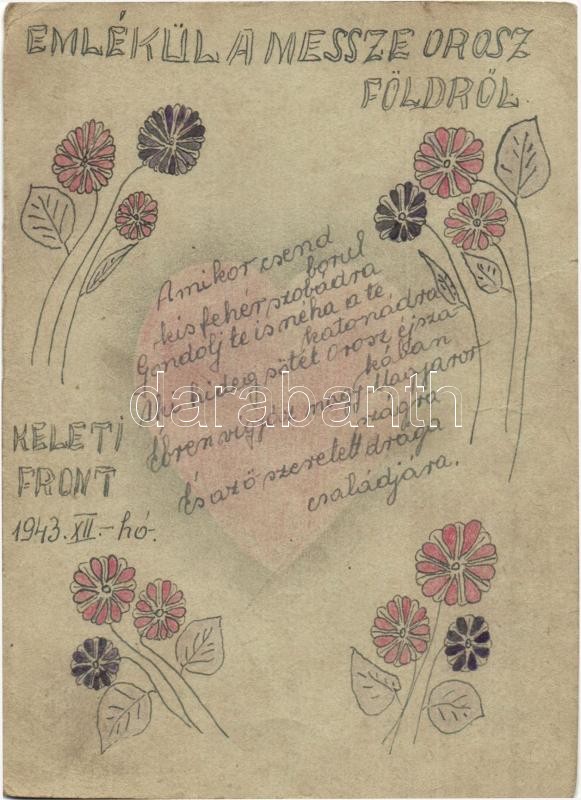 EMLÉKÜL A MESSZE OROSZ
FÖLDRŐL.
Amikor csend
borul
kis fehér szobádra
Gondolj te is néha a te
katonádra
Ki hideg sötét orosz éjsza-
kában
Ébren vigyáz nagy Magyaror-
szágra
És az ő szeretett drága
családjára.
KELETI
FRONT
1943. XII.-hó.
darabanth